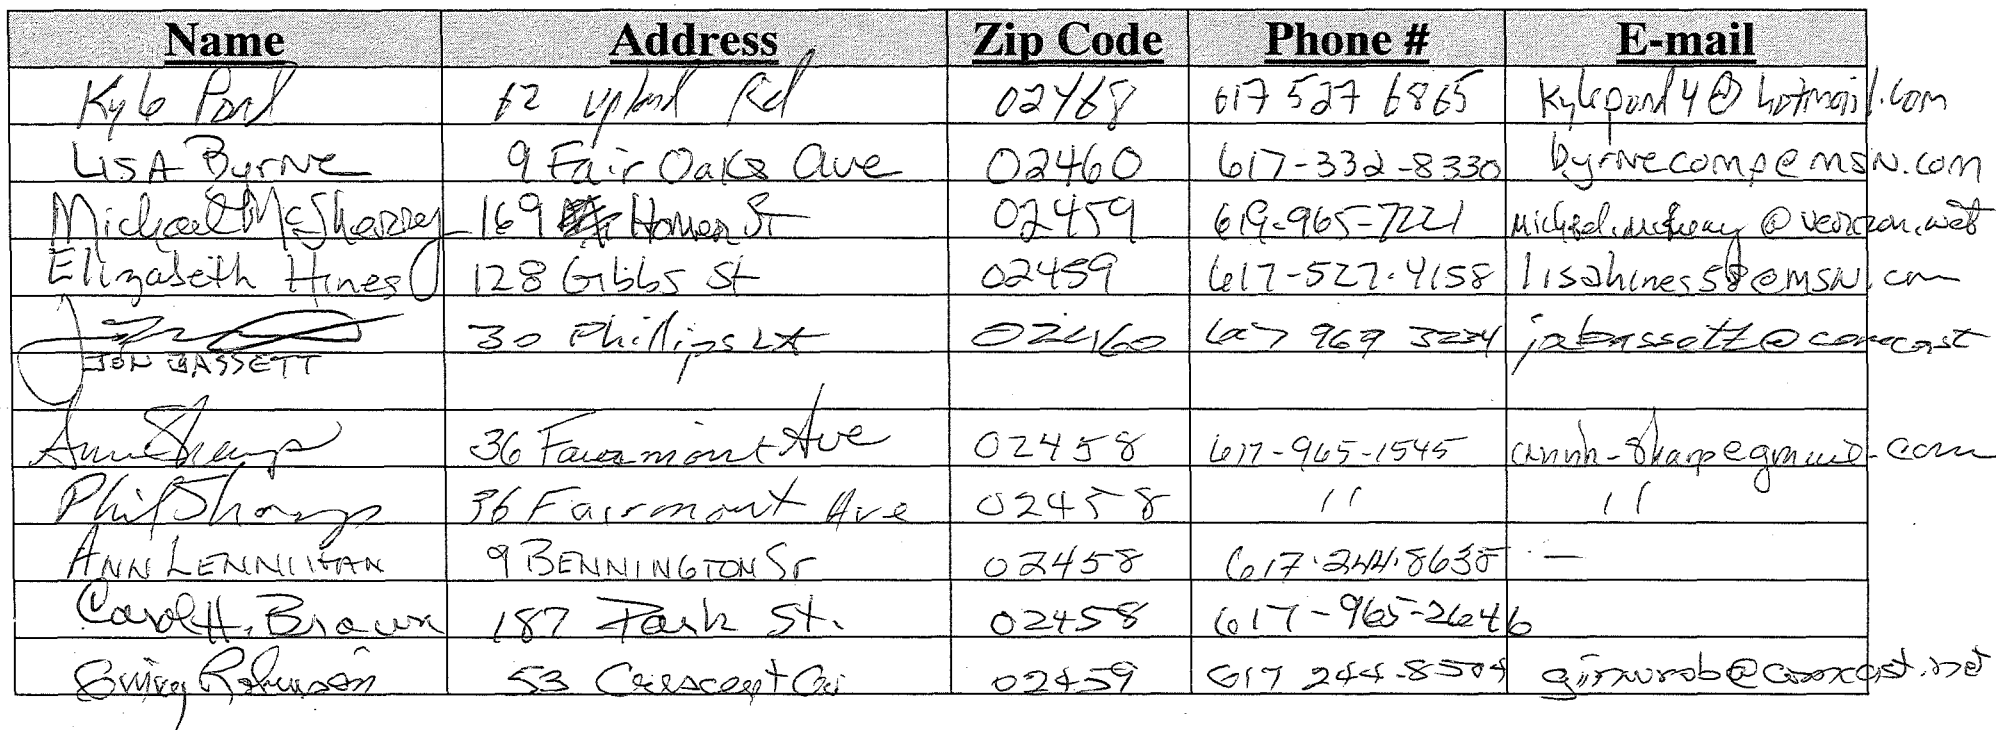 Name Address Zip Code Phone # E-mail
Kyle Pond 62 Upland Rd 02468 617 527 6865 kylepond4@hotmail.com
LISA Byrne 9 Fair Oaks Ave 02460 617-332-8330 byrnecomp@msn.com
Michael McSharry 169 Homer St 02459 619-965-7221 @verizon.net
Elizabeth Hines 128 Gibbs St 02459 617-527-4158 lisahines58@msn.com
30 Phillips 02460 617 969 3234 jabassett@comcast
JON BASSETT
Ann Sharp 36 Fairmont Ave 02458 617-965-1545 annh-sharp@gmail.com
Phil Sharp 36 Fairmont Ave 02458 " "
ANN LENNIHAN 9 BENNINGTON St 02458 617.244.8638 —
Carol H. Braun 187 Park St. 02458 617-965-2646
Robinson 53 Crescent 02459 617 244-8504 @comcast.net